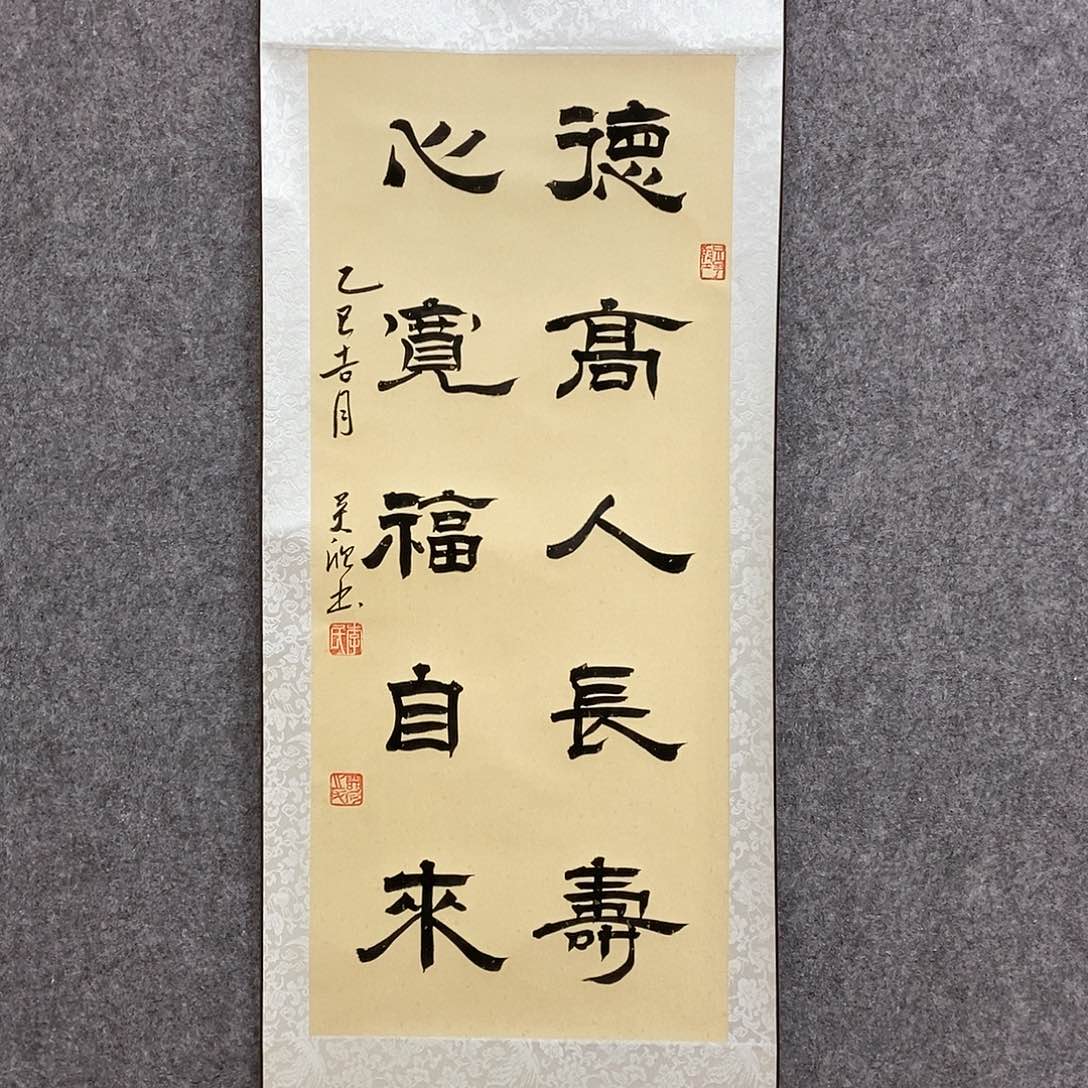 德高人長壽
心寬福自來
乙巳吉月